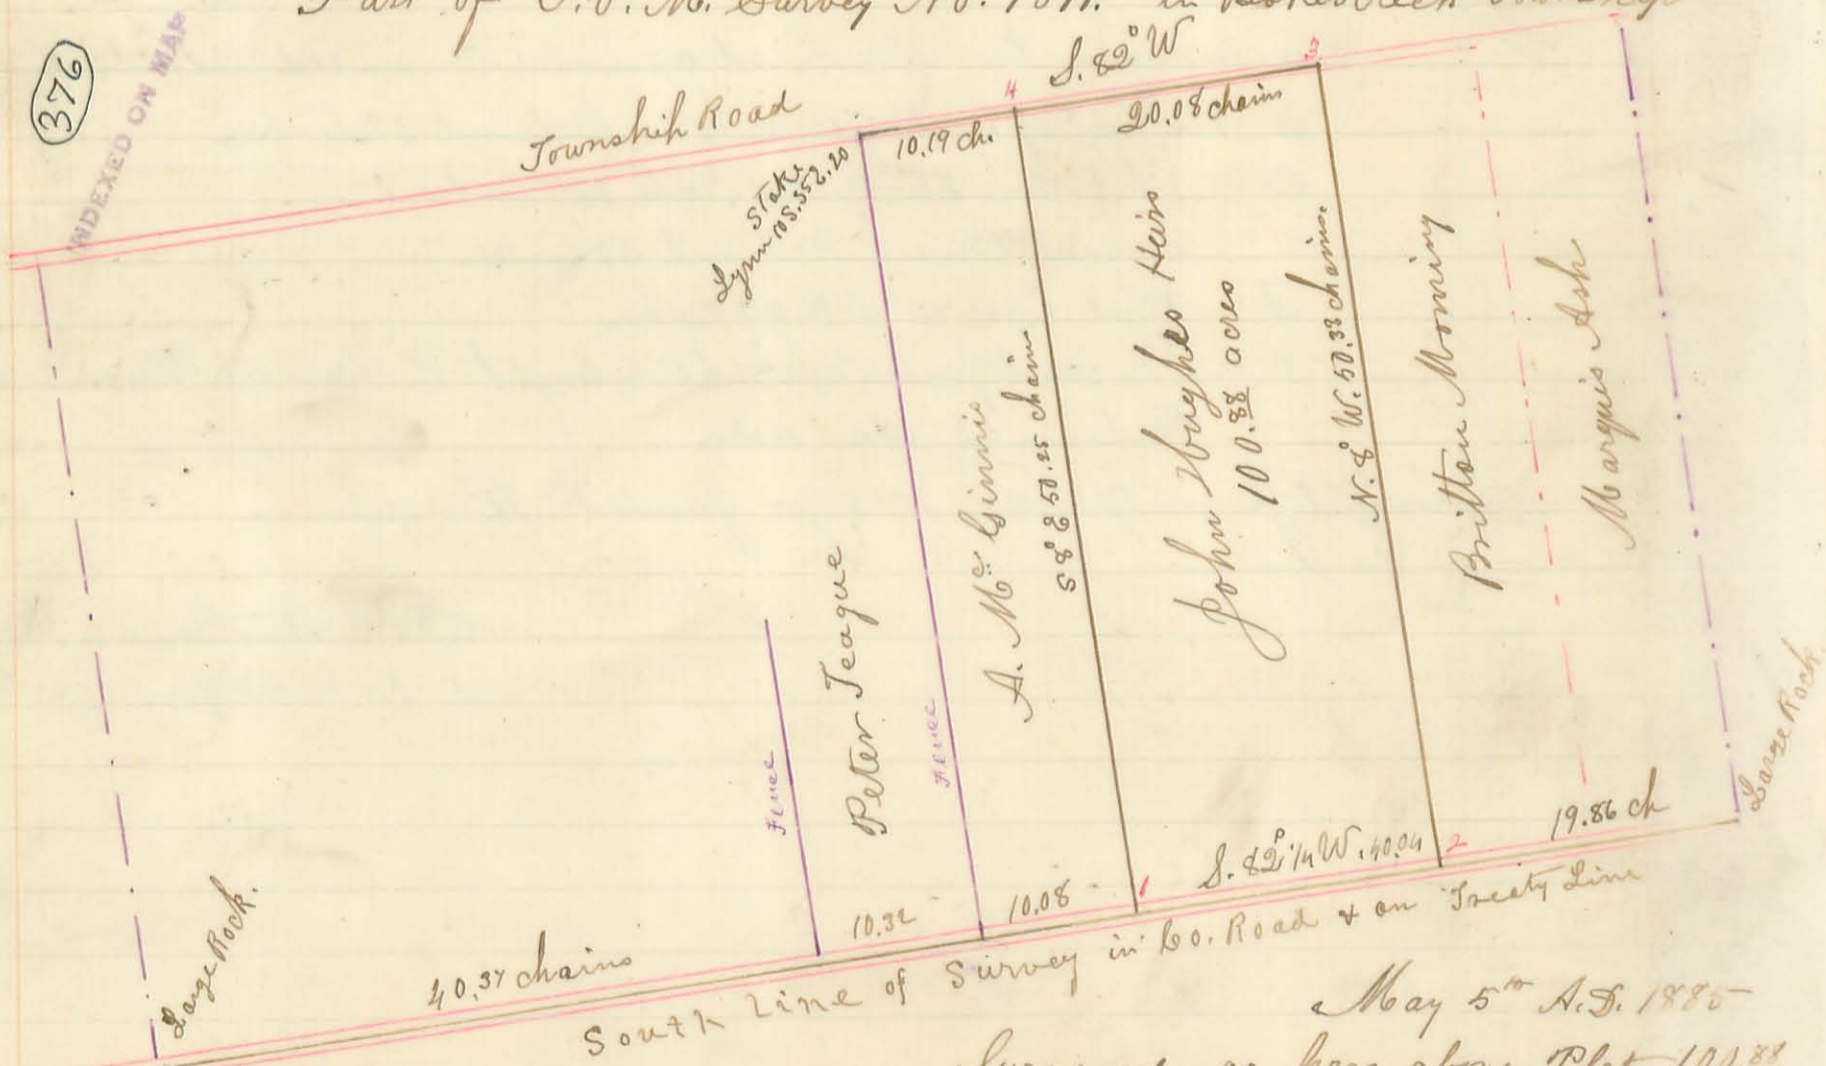 Part of V. M. Survey No. in Township
376
INDEXED ON MAP
Township Road
S. 82° W
4
3
10.19 ch.
20.08 chains
Stake
Lynn 10 S. 35 E. .20
Peter Teague
Fence
Fence
A. Mc Ginnis
S 8° E 50.25 chains
John Hughes Heirs
100.88 acres
N. 8° W. 50.33 chains.
Britton Morning
Marquis Ash
Large Rock.
Large Rock.
40.37 chains
10.32
10.08
1
S. 82° 1/4 W. 40.04
2
19.86 ch
South Line of Survey in Co. Road & on Treaty Line
May 5th A.D. 1885
above Plat 100.88